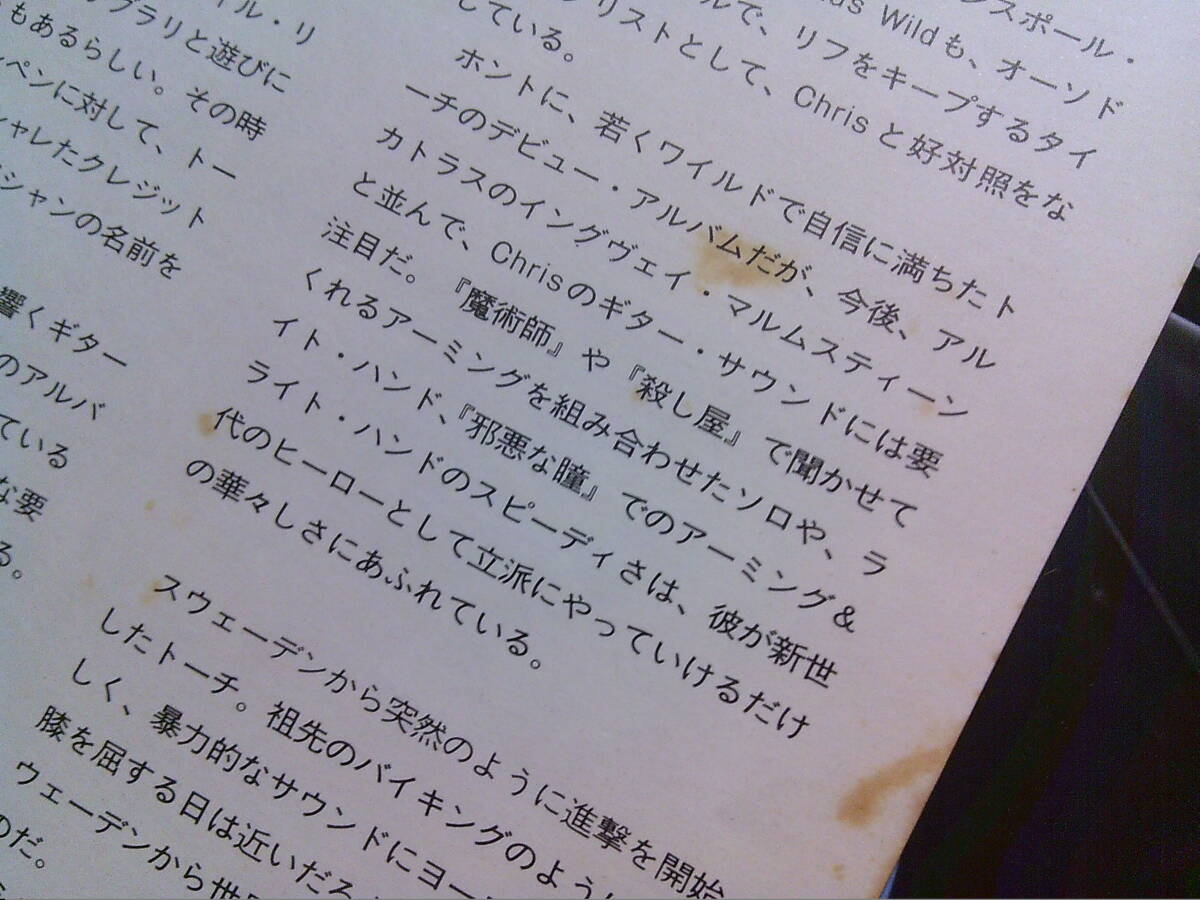 イル・リ
ブラリと遊びに
もあるらしい。その時
ペンに対して、トー
シャレたクレジット
シャンの名前を
響くギター
のアルバ
ている
な要
る。
ンスポール・
Wildも、オーソド
ルで、リフをキープするタイ
リストとして、Chrisと好対照をな
している。
ホントに、若くワイルドで自信に満ちたト
ーチのデビュー・アルバムだが、今後、アル
カトラスのイングヴェイ・マルムスティーン
と並んで、Chrisのギター・サウンドには要
注目だ。『魔術師』や『殺し屋』で聞かせて
くれるアーミングを組み合わせたソロや、ラ
イト・ハンド、『邪悪な瞳』でのアーミング&
ライト・ハンドのスピーディさは、彼が新世
代のヒーローとして立派にやっていけるだけ
の華々しさにあふれている。
スウェーデンから突然のように進撃を開始
したトーチ。祖先のバイキングのように
しく、暴力的なサウンドにヨー
膝を屈する日は近いだろ
ウェーデンから世
のだ。